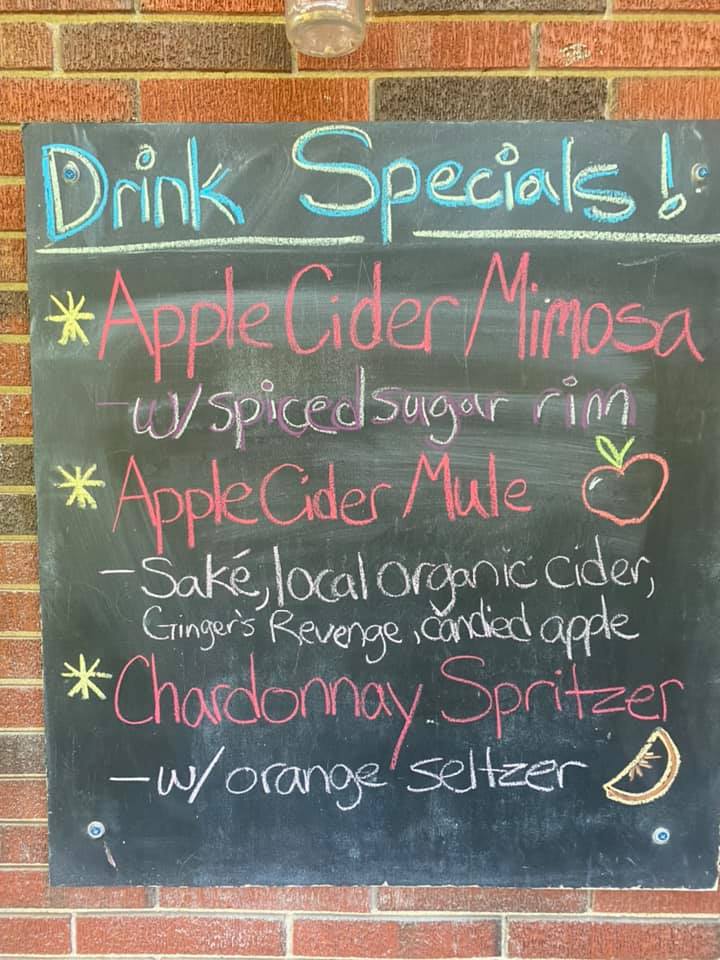 Drink Specials!
* Apple Cider Mimosa
- w/ spiced sugar rim
* Apple Cider Mule
- Saké, local organic cider,
Ginger's Revenge, candied apple
* Chardonnay Spritzer
- w/ orange seltzer